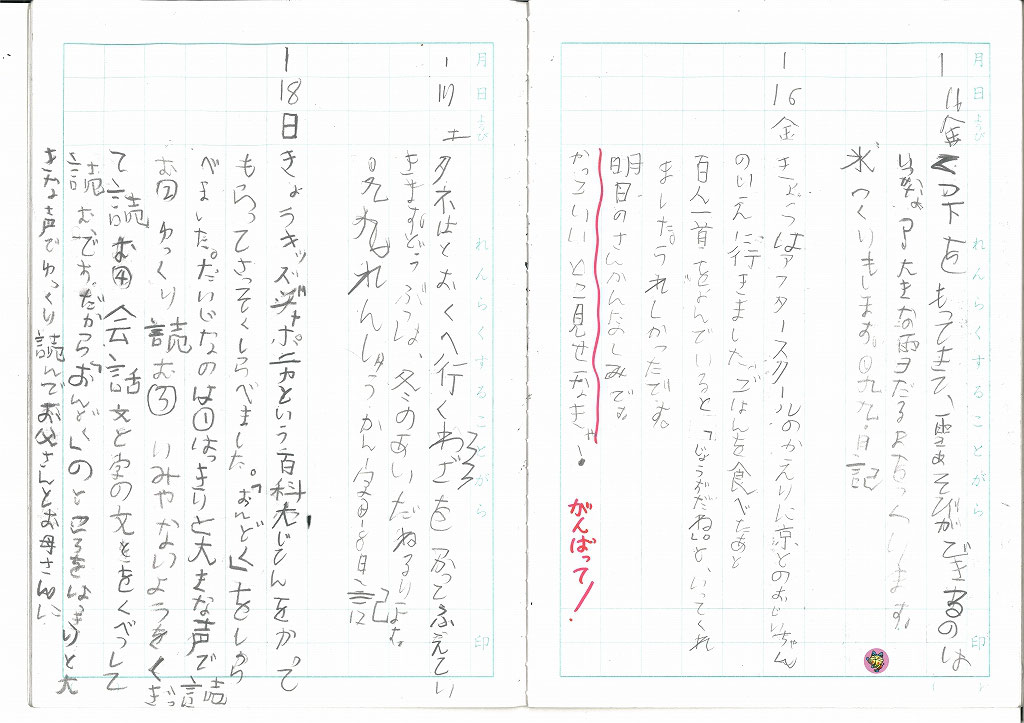 月日
ようび
れんらくすることがら
印
1
16
金
もってきて、雪あそびができるのは
氷つくりもします。①九九・日記
1
16
金
きょうはアフタースクールのかえりに涼とのおじいちゃん
のいえに行きました。ごはんを食べたあと
百人一首をよんでいると「じょうずだね。」と、いってくれ
ました。うれしかったです。
明日のさんかんたのしみです。
かっこいいとこ見せなきゃ!
がんばって!
月日
ようび
れんらくすることがら
印
1
17
土
タネはとおくへ行くわざをつかってふえてい
きます。どうぶつは、冬のあいだねるりします。
九九れんしゅう かん字・日記
1
18
日
きょうキッズジャポニカという百科じてんをかって
もらってさっそくしらべました。「おんどく」をしら
べました。だいじなのは①はっきりと大きな声で読
む② ゆっくり読む③ いみやないようをくぎっ
て読む④ 会話文とほかの文とをくべつして
読む、です。だから、「おんどく」のところをはっきりと大
きな声でゆっくり読んでお父さんとお母さんに